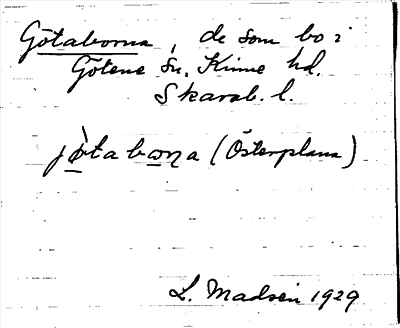 Götaborna, de som bo i
Götene sn. Kinne hd.
Skarab. l.
jö̀tabor̲n̲a (Österplana)
L. Madsén 1929